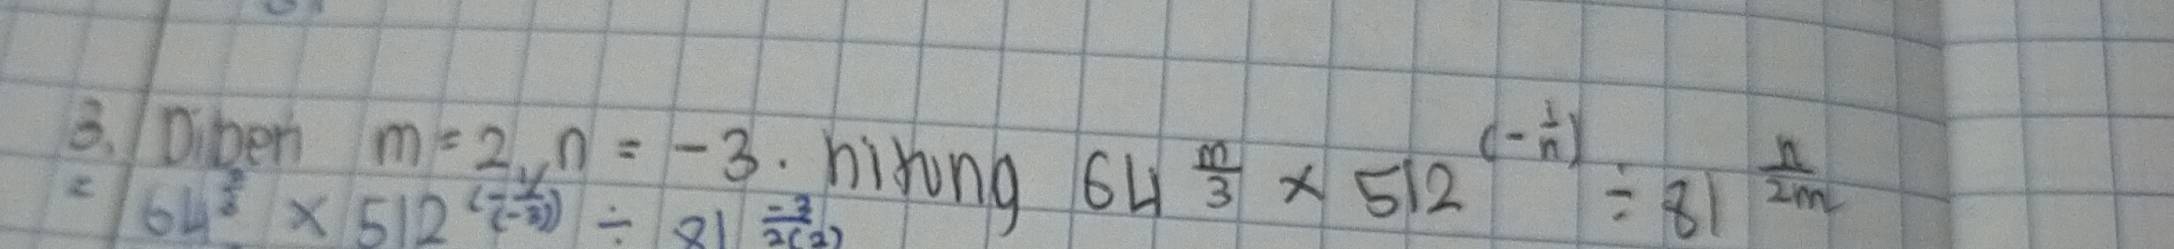 3. Diberi m = 2, n = -3. hitung 64^{\frac{m}{3}} × 512^{(-\frac{1}{n})} ÷ 81^{\frac{n}{2m}}
= 64^{\frac{2}{3}} × 512^{(-\frac{1}{(-3)})} ÷ 81^{\frac{-3}{2(2)}}